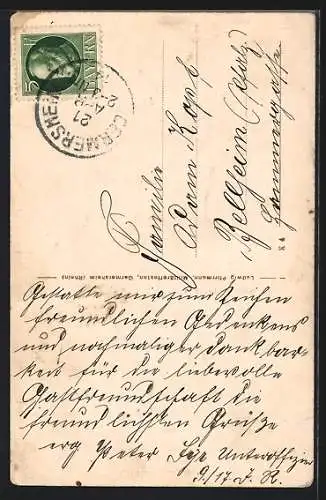 5
BAYERN
GERMERSHEIM
21
Familie
Adam Kopf
Bellheim (Pfalz)
Ludwig Plörmann, Militäreffecten, Germersheim (Rhein)
Gestatte mir zum Zeichen
freundlichen Gedenkens
und nochmaliger Dankbar-
keit für die liebevolle
Gastfreundschaft die
freundlichsten Grüße
erg Peter Unteroffizier
9./17 I. R.